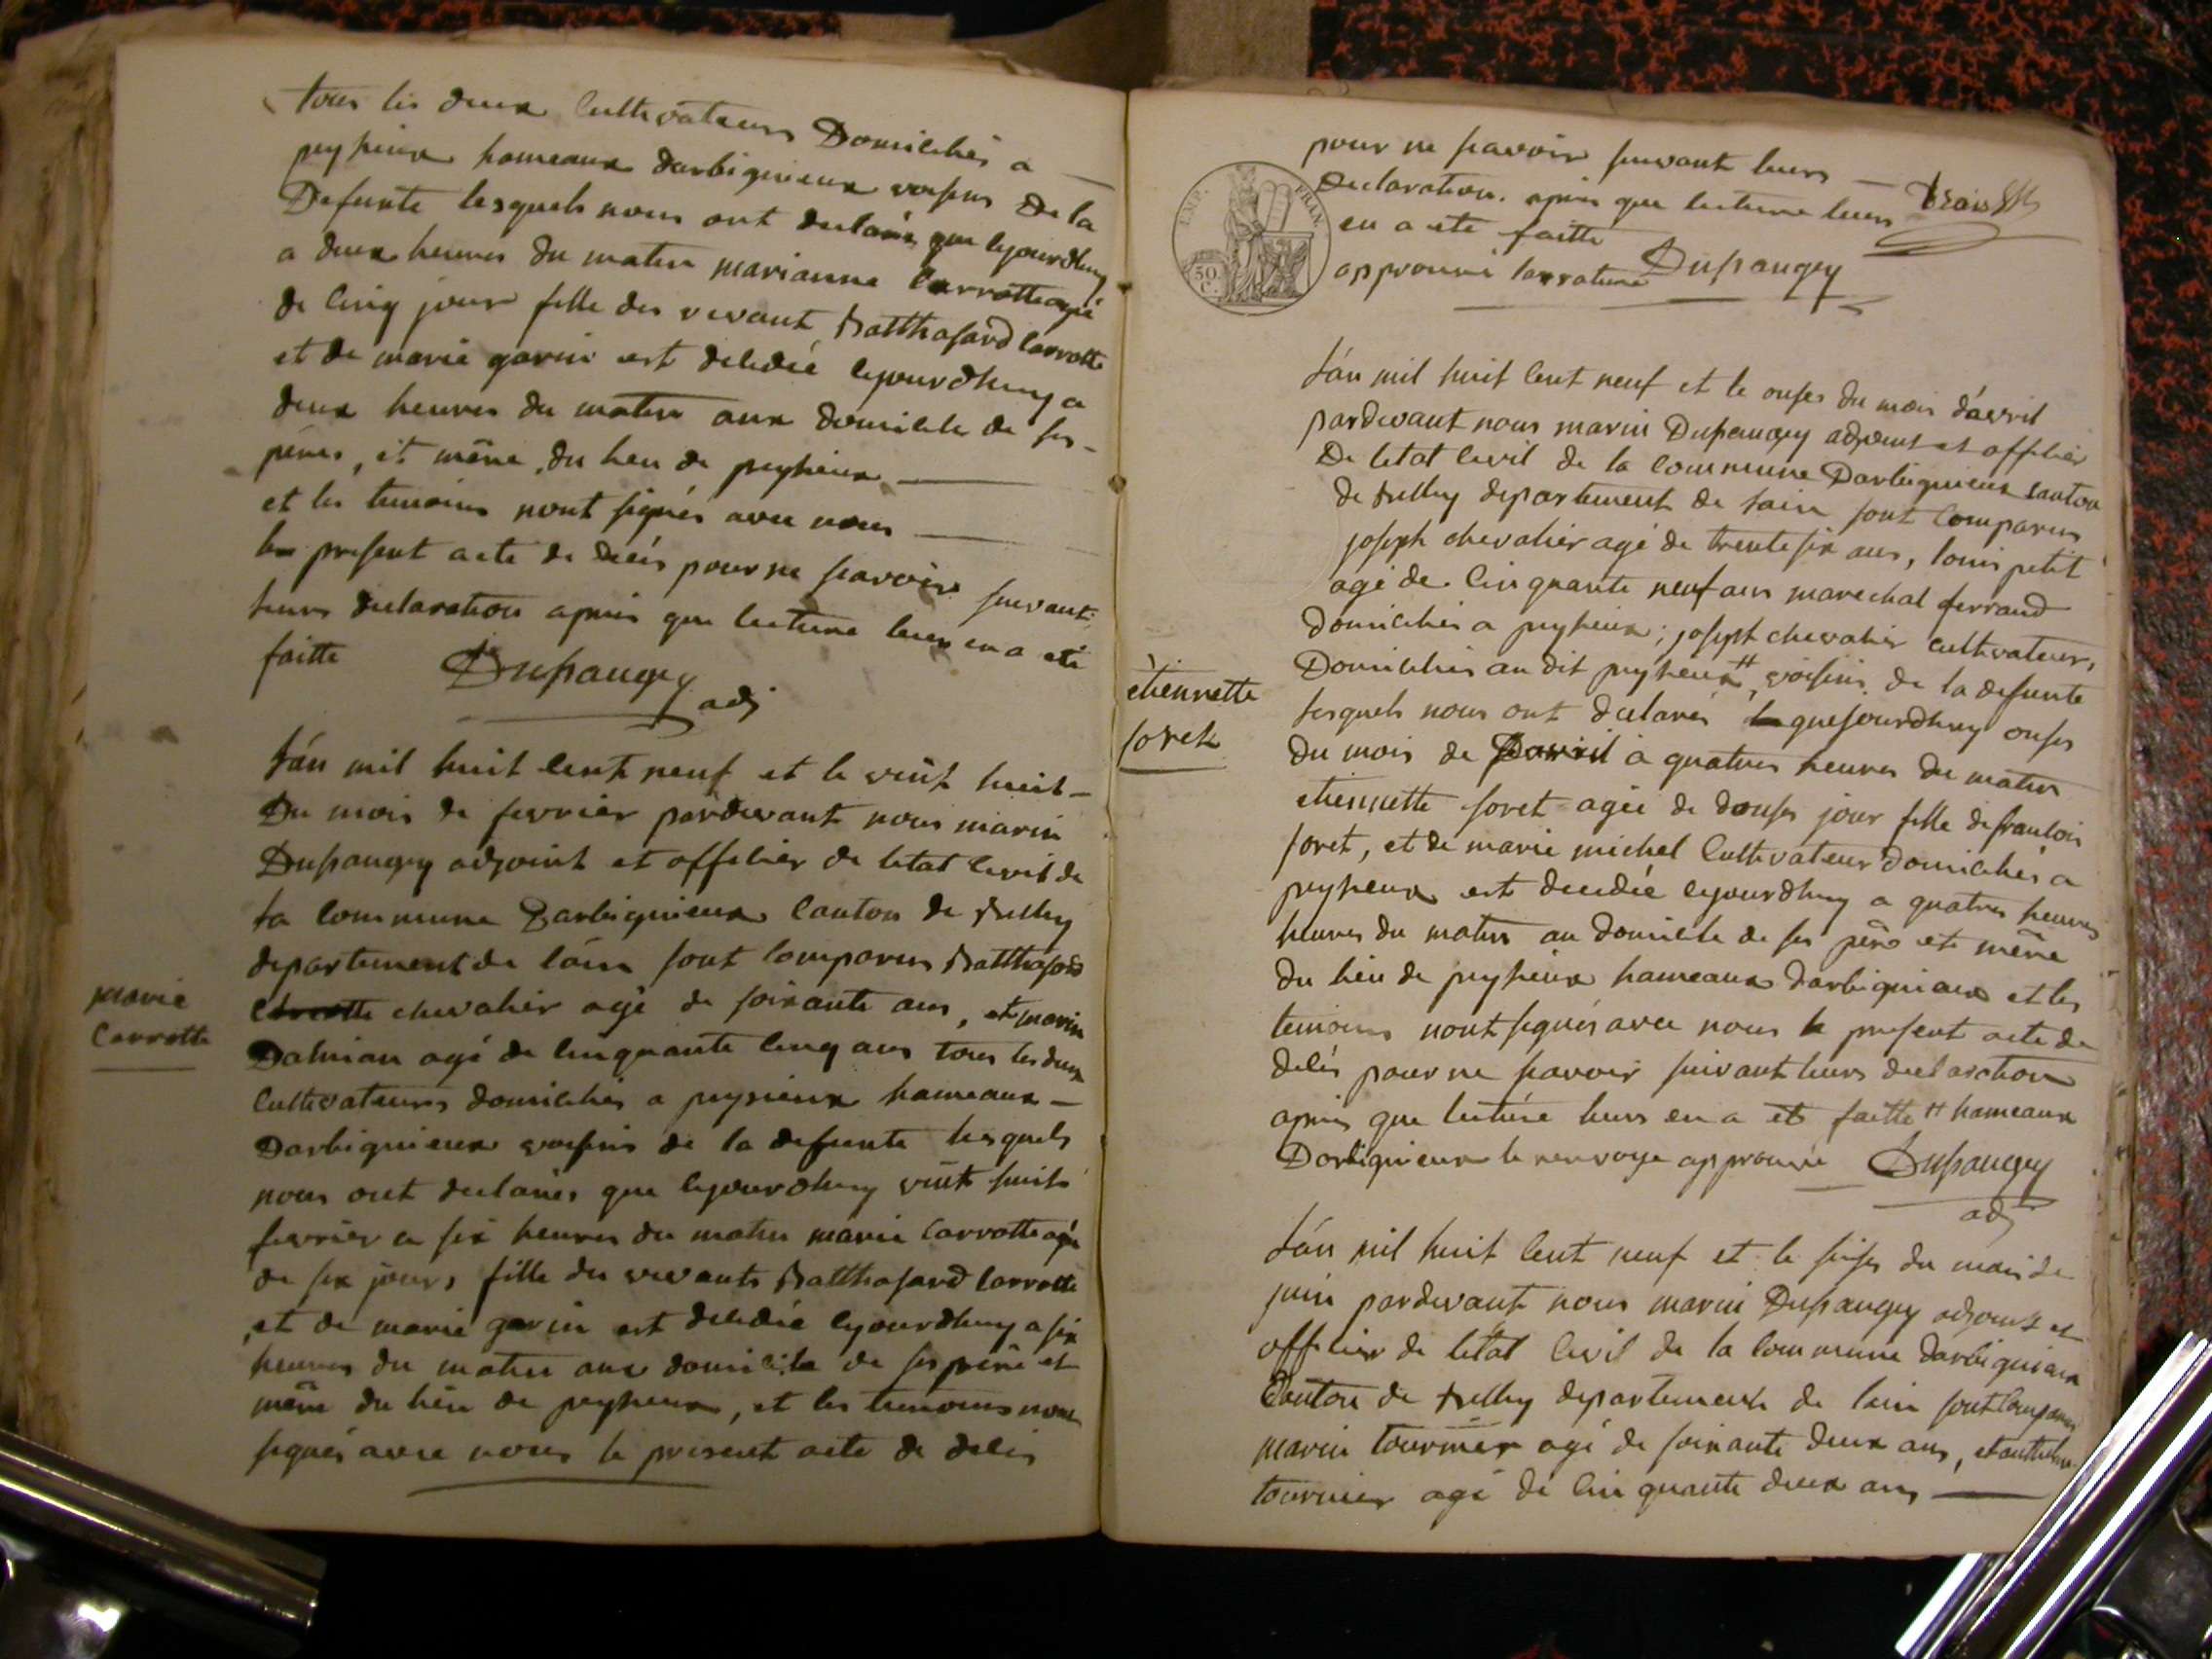 tous les deux Cultivateurs Domiciliés a
peysieux hameaux darbignieux voisins De la
Defunte lesquels nous ont declarés que cejourdhuy
a deux heures du matin marianne Carrotte agé
de Cinq jour fille des vivant Batthasard Carrotte
et de marie garin est décédée cejourdhuy a
deux heures du matin aux domicile de ses
pères, et mère du lieu de peysieux
et les temoins nont signés avec nous
le present acte de décés pour ne scavoire suivant
leurs declaration aprés que lecture leurs en a eté
faitte Dupaugey
adj
Lán mil huit cent neuf et le vint huit
Du mois de fevrier pardevant nous marin
Dupaugey adjoint et officier de letat Civil de
la Commune Darbignieux Canton de Belley
departement de láin sont Comparus Batthasard
chevalier agé de soixante ans, et marin
Dalmian agé de Cinquante Cinq ans tous les deux
Cultivateurs domiciliés a peysieux hameaux
Darbignieux voisins de la defunte lesquels
nous ont declarés que cejourdhuy vint huit
fevrier a six heures du matin marie Carrotte agé
de six jours fille des vivants Batthasard Carrotte
et de marie garin est décédée cejourdhuy a six
heures du matin aux domicile de ses père et
mère du lieu de peysieux, et les temoins nont
signés avec nous le present acte de décés
marie
Carrotte
pour ne scavoir suivant leurs
declaration. aprés que lecture leurs
en a eté faitte
approuvé la rature Dupaugey
trois
IMP. FRAN.
50.
C.
Lán mil huit Cent neuf et le onses du mois dávril
pardevant nous marin Dupaugey adjoint et officier
De letat Civil de la Commune Darbignieux Canton
de Belley departement de lain sont Comparus
joseph chevalier agé de trente six ans, louis petit
agé de Cinquante neuf ans marechal ferrand
Domiciliés a peysieux; joseph chevalier cultivateur,
Domiciliés au dit peysieux # voisins de la defunte
lesquels nous ont declarés que jourdhuy onses
du mois de Davril à quatres heures du matin
etiennette foret agée de douses jour fille de francois
foret, et de marie michel Cultivateur Domiciliés a
peysieux est decedée cejourdhuy a quatres heures
heures du matin au domicile de ses père et mère
du lieu de peysieux hameaux darbignieux et les
temoins nont signés avec nous le present acte de
décés pour ne scavoir suivant leurs declaration
aprés que lecture leurs en a eté faitte # hameaux
Darbignieux le renvoye approuvé Dupaugey
adj
etiennette
foret
Lán mil huit Cent neuf et le seises du mois de
juin pardevant nous marin Dupaugey adjoint et
officier de letat Civil de la Commune darbignieux
Canton de Belley departement de lain sont Comparus
marin tournier agé de soixante deux ans, et anthelme
tournier agé de Cinquante deux ans